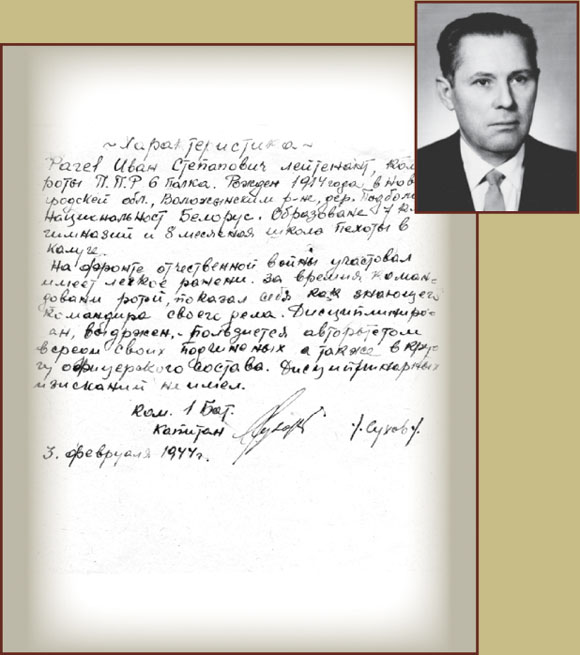 ~Характеристика~
Рагев Иван Степанович лейтенант, ком
роты П.П.Р 6 полка. Рожден 1914 года, в Нов
городской обл, Воложенским р-не, дер.
Национальност Белорус. Образоване 7 кл
гимназий и 8 месячная школа пехоты в
Калуге.
На фронте отчественной войны участовал
имеет легкое ранени. За времия коман-
довани ротой, показал себя как знающего
командира своего дела. Дисциплиниро-
ан, выдржен, - пользиется авторытетом
всреди своих подчиненых а также в кру-
гу офицерского состава. Дисциплинарных
изисканий не имел.
Ком. 1 Бат.
Капитан /.Сухов./.
3. февруаля 1944г.